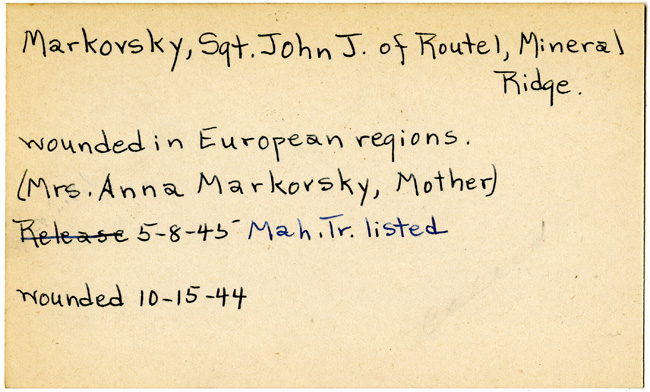 Markovsky, Sgt. John J. of Route 1, Mineral
Ridge.
wounded in European regions.
(Mrs. Anna Markovsky, Mother)
Release 5-8-45 Mah. Tr. listed
wounded 10-15-44